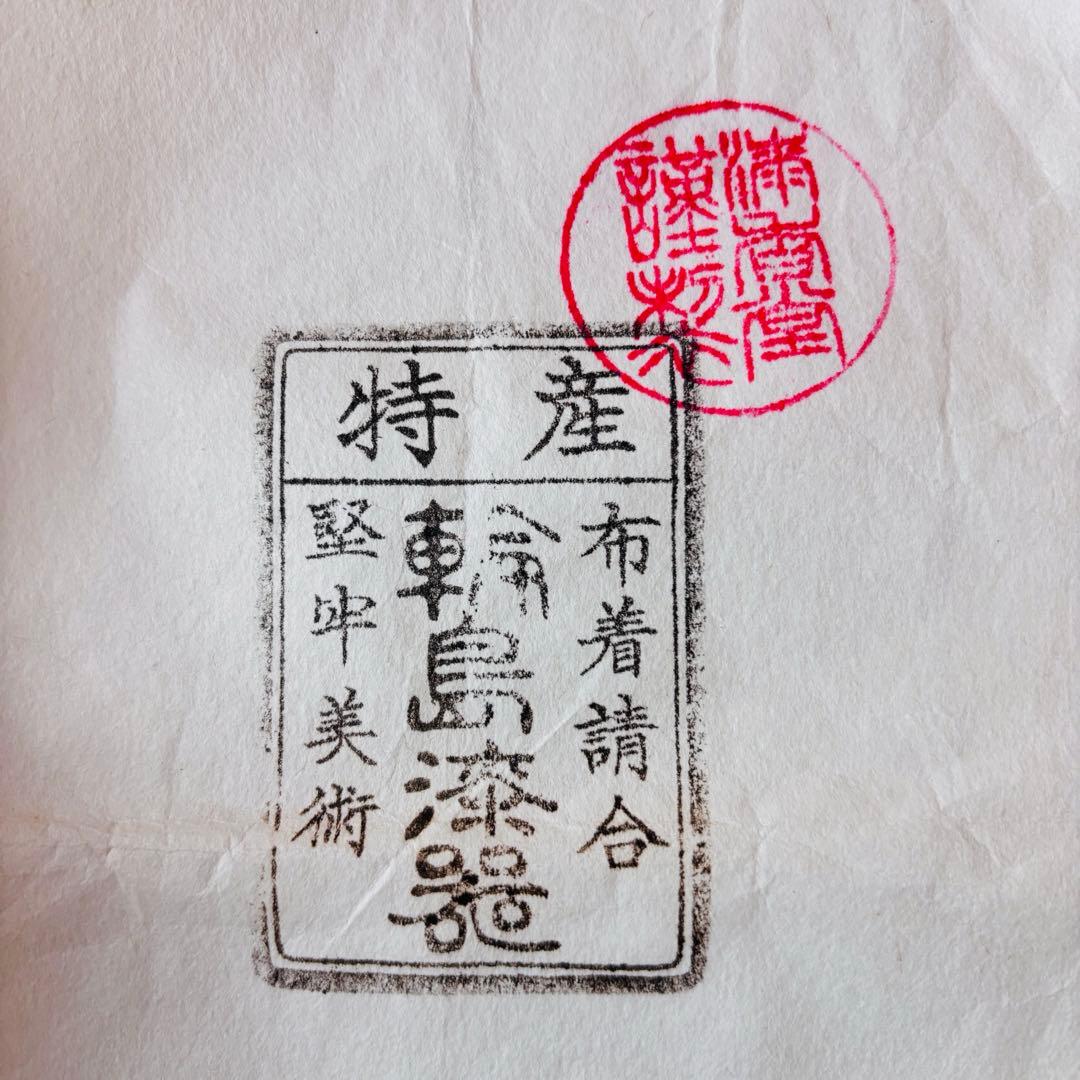 満堂
謹製
特産
布着請合
輪島漆器
堅牢美術